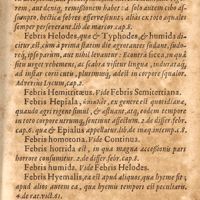 rem, aut denig, remoßionem habet: à solo autem cibo as-
sumpto, hectica febres agressunt, alias ex toto æquales
semper perseuerant. lib. de marc. cap. 8.
Febris Helodes, quæ & Typhodes, & humida di-
citur est, cum à prima statim die ægrotantes sudant, sudo-
réq́; ipso parum, aut nihil leuantur: Et citra sicca, in qua
siti æger vehementi, ac scabra vstus lingua, indurataq́;
ad instar corii cutis, plurimùq́;, adest in corpore squalor.
Aduersus Lycum, cap. 3.
Febris Hemitritæus. Vide Febris Semitertiana.
Febris Hepiala, ex genere est quotidianæ,
quando ægri rigent simul, et incandescunt, atq́; eodem tem-
pore in toto corpore, et sentiunt, 2. de differ. febr.
cap. 6. quæ & Epialus appellatur. lib. de inæq. intemp. c. 8.
Febris homotona. Vide Continua.
Febris horrida est, in qua magna accessionis pars
horrore consumitur. 2. de differ. febr. cap.
Febris humida. Vide Febris Helodes.
Febris Hyemalis, ea est apud aliquos, quæ hyeme fit,
apud alios autem ea, quæ hyemis tempori est peculiaris.
4. de rat. vict. 51.